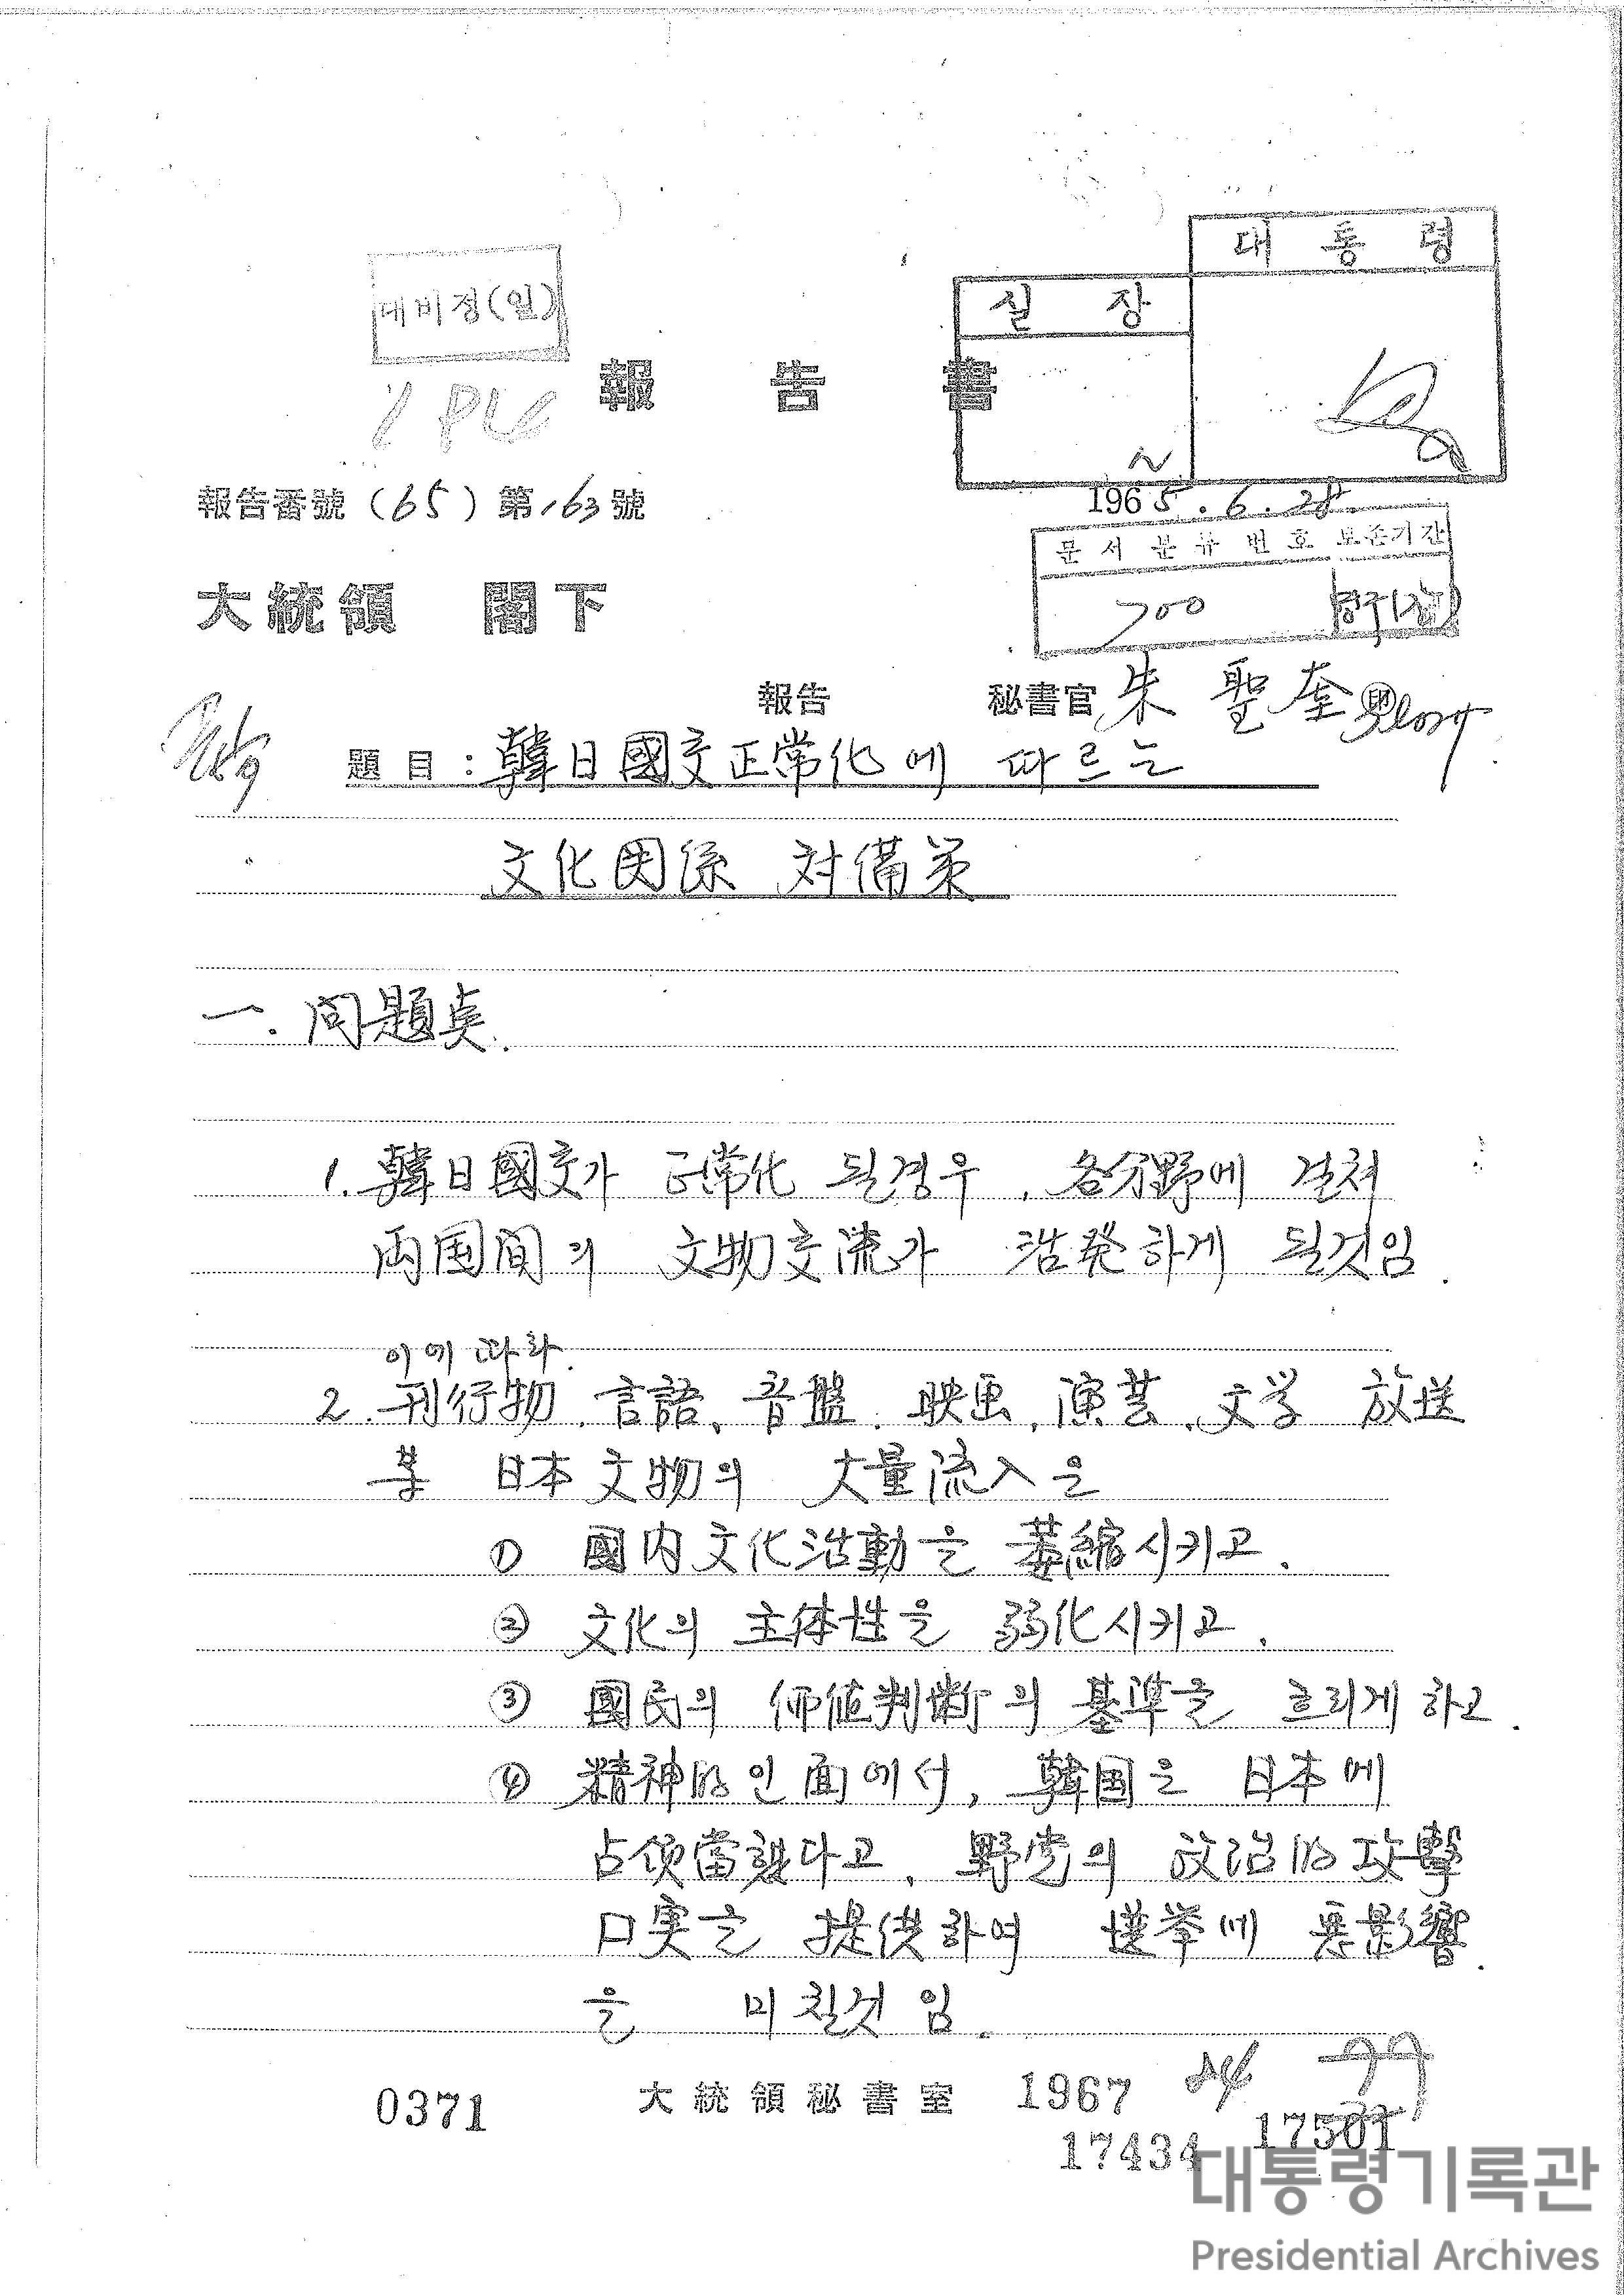 대통령
실장
대비정(일)
報告書
報告番號 (65) 第163號
1965.6.28
문서분류번호 보존기간
700 영구
大統領 閣下
報告 秘書官 朱聖奎
題目 : 韓日國交正常化에 따르는
文化関係 対備策
一. 問題点.
1. 韓日國交가 正常化 될경우, 各分野에 걸쳐
両国間의 文物交流가 活発하게 될것임.
이에 따라.
2. 刊行物, 言語, 音盤, 映画, 演芸, 文学 放送
等 日本文物의 大量流入은
① 國内文化活動을 萎縮시키고.
② 文化의 主体性을 弱化시키고.
③ 國民의 価値判断의 基準을 흐리게 하고.
④ 精神的인 面에서, 韓国은 日本에
占领當했다고, 野党의 政治的攻擊
口実을 提供하여 選挙에 悪影響
을 미칠것 임.
0371
大統領秘書室
1967
17434
17501
대통령기록관
Presidential Archives